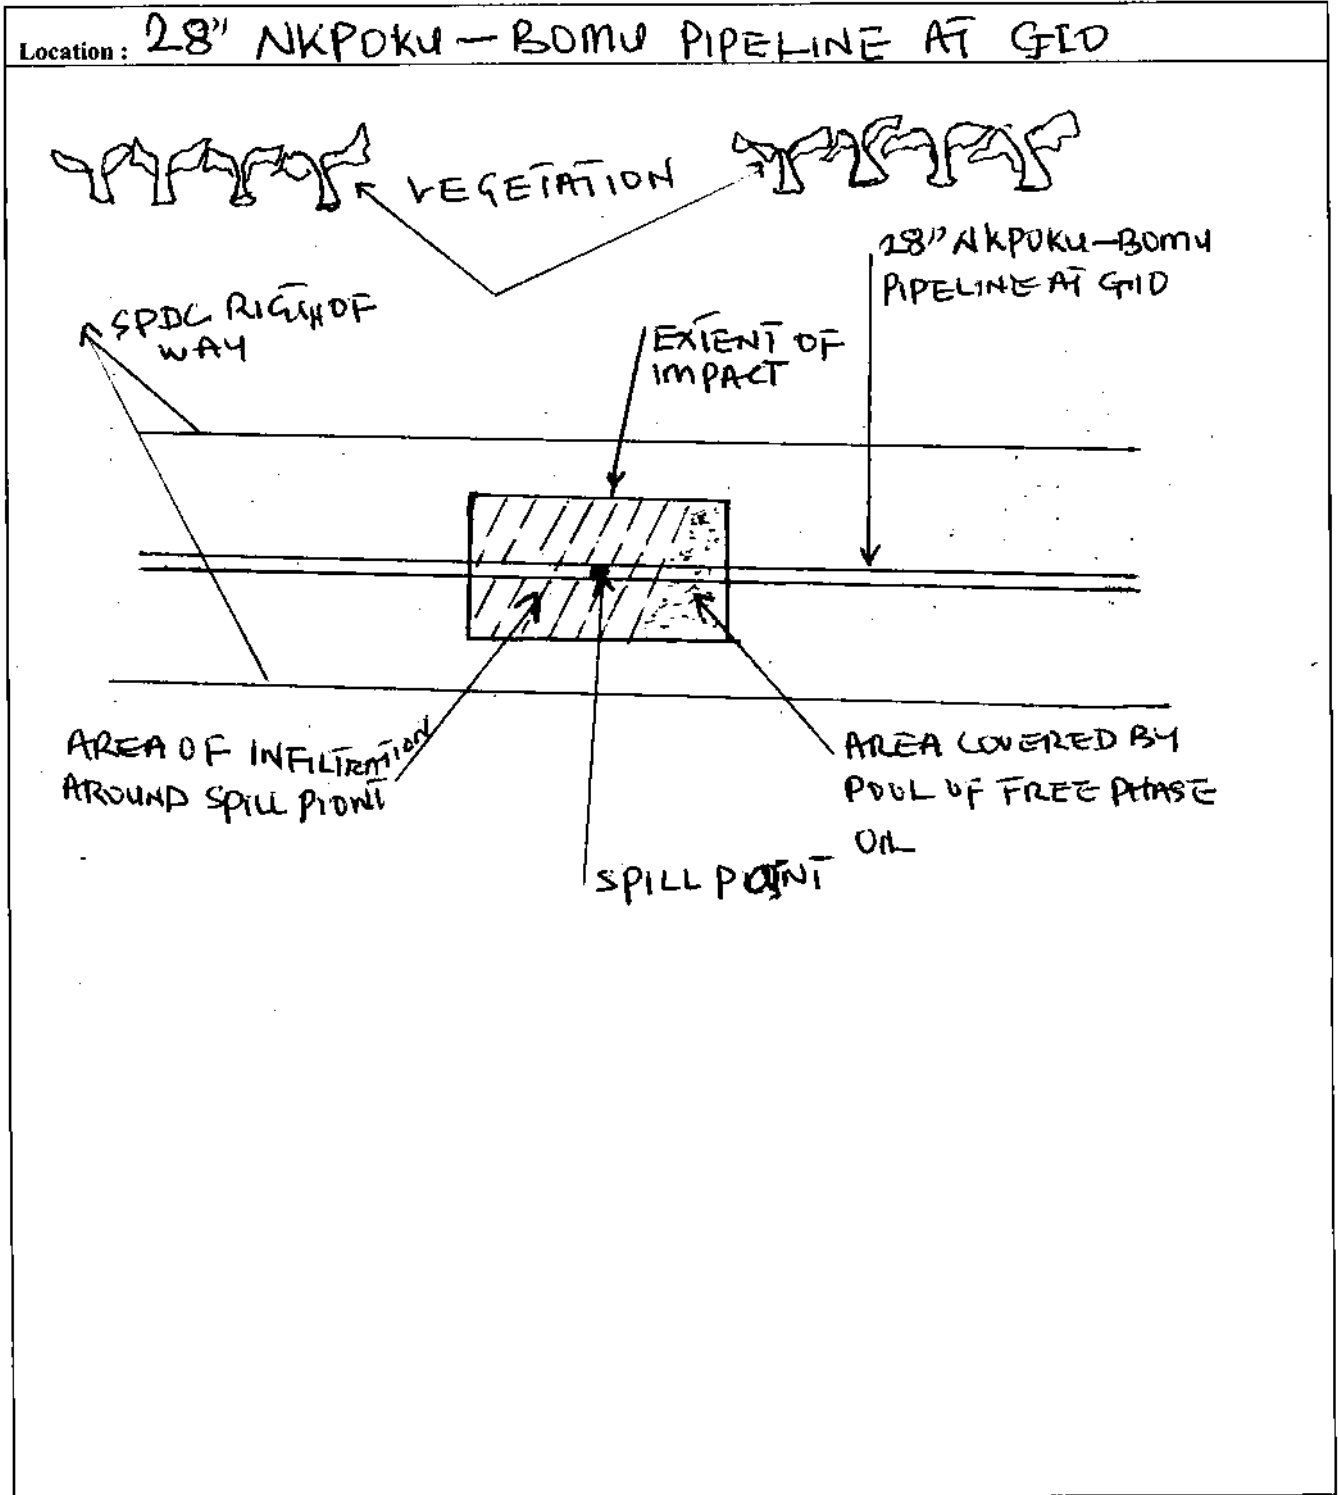 Location : 28" NKPOKU – BOMU PIPELINE AT GIO
VEGETATION
28" NKPOKU–BOMU
PIPELINE AT GIO
SPDC RIGTH OF
WAY
EXTENT OF
IMPACT
AREA OF INFILTRATION
AROUND SPILL PIONT
AREA COVERED BY
POOL OF FREE PHASE
OIL
SPILL POINT